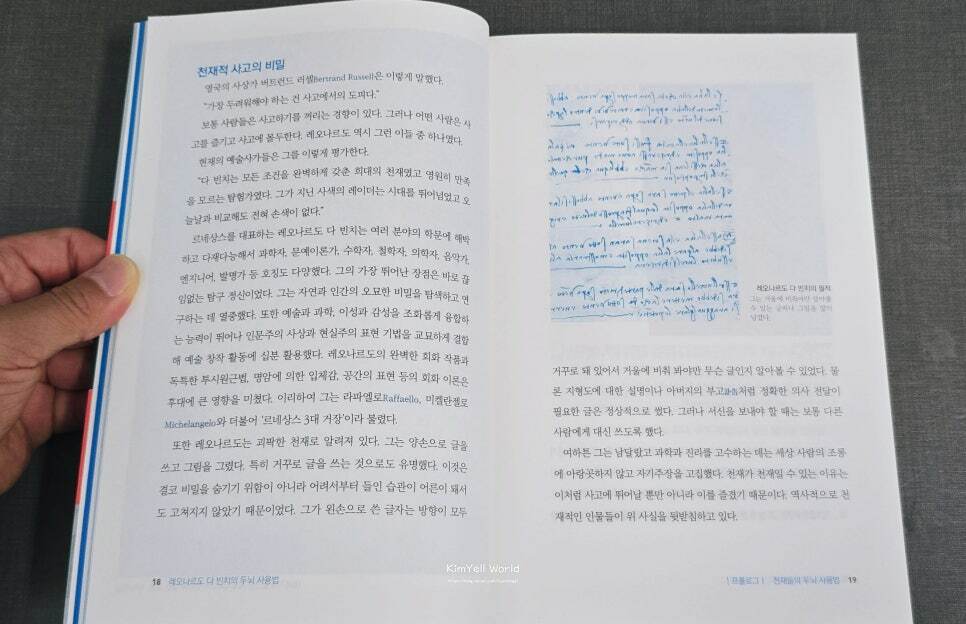 천재적 사고의 비밀
영국의 사상가 버트런드 러셀Bertrand Russell은 이렇게 말했다.
"가장 두려워해야 하는 건 사고에서의 도피다."
보통 사람들은 사고하기를 꺼리는 경향이 있다. 그러나 어떤 사람은 사
고를 즐기고 사고에 몰두한다. 레오나르도 역시 그런 이들 중 하나였다.
현재의 예술사가들은 그를 이렇게 평가한다.
"다 빈치는 모든 조건을 완벽하게 갖춘 희대의 천재였고 영원히 만족
을 모르는 탐험가였다. 그가 지닌 사색의 레이더는 시대를 뛰어넘었고 오
늘날과 비교해도 전혀 손색이 없다."
르네상스를 대표하는 레오나르도 다 빈치는 여러 분야의 학문에 해박
하고 다재다능해서 과학자, 문예이론가, 수학자, 철학자, 의학자, 음악가,
엔지니어, 발명가 등 호칭도 다양했다. 그의 가장 뛰어난 장점은 바로 끊
임없는 탐구 정신이었다. 그는 자연과 인간의 오묘한 비밀을 탐색하고 연
구하는 데 열중했다. 또한 예술과 과학, 이성과 감성을 조화롭게 융합하
는 능력이 뛰어나 인문주의 사상과 현실주의 표현 기법을 교묘하게 결합
해 예술 창작 활동에 십분 활용했다. 레오나르도의 완벽한 회화 작품과
독특한 투시원근법, 명암에 의한 입체감, 공간의 표현 등의 회화 이론은
후대에 큰 영향을 미쳤다. 이리하여 그는 라파엘로Raffaello, 미켈란젤로
Michelangelo와 더불어 '르네상스 3대 거장'이라 불렸다.
또한 레오나르도는 괴팍한 천재로 알려져 있다. 그는 양손으로 글을
쓰고 그림을 그렸다. 특히 거꾸로 글을 쓰는 것으로도 유명했다. 이것은
결코 비밀을 숨기기 위함이 아니라 어려서부터 들인 습관이 어른이 돼서
도 고쳐지지 않았기 때문이었다. 그가 왼손으로 쓴 글자는 방향이 모두
18 레오나르도 다 빈치의 두뇌 사용법
레오나르도 다 빈치의 필적
그는 거울에 비춰야만 알아볼
수 있는 글씨나 그림을 많이
남겼다.
거꾸로 돼 있어서 거울에 비춰 봐야만 무슨 글인지 알아볼 수 있었다. 물
론 지형도에 대한 설명이나 아버지의 부고訃告처럼 정확한 의사 전달이
필요한 글은 정상적으로 썼다. 그러나 서신을 보내야 할 때는 보통 다른
사람에게 대신 쓰도록 했다.
여하튼 그는 남달랐고 과학과 진리를 고수하는 데는 세상 사람의 조롱
에 아랑곳하지 않고 자기주장을 고집했다. 천재가 천재일 수 있는 이유는
이처럼 사고에 뛰어날 뿐만 아니라 이를 즐겼기 때문이다. 역사적으로 천
재적인 인물들이 위 사실을 뒷받침하고 있다.
| 프롤로그 | 천재들의 두뇌 사용법 19
KimYell World